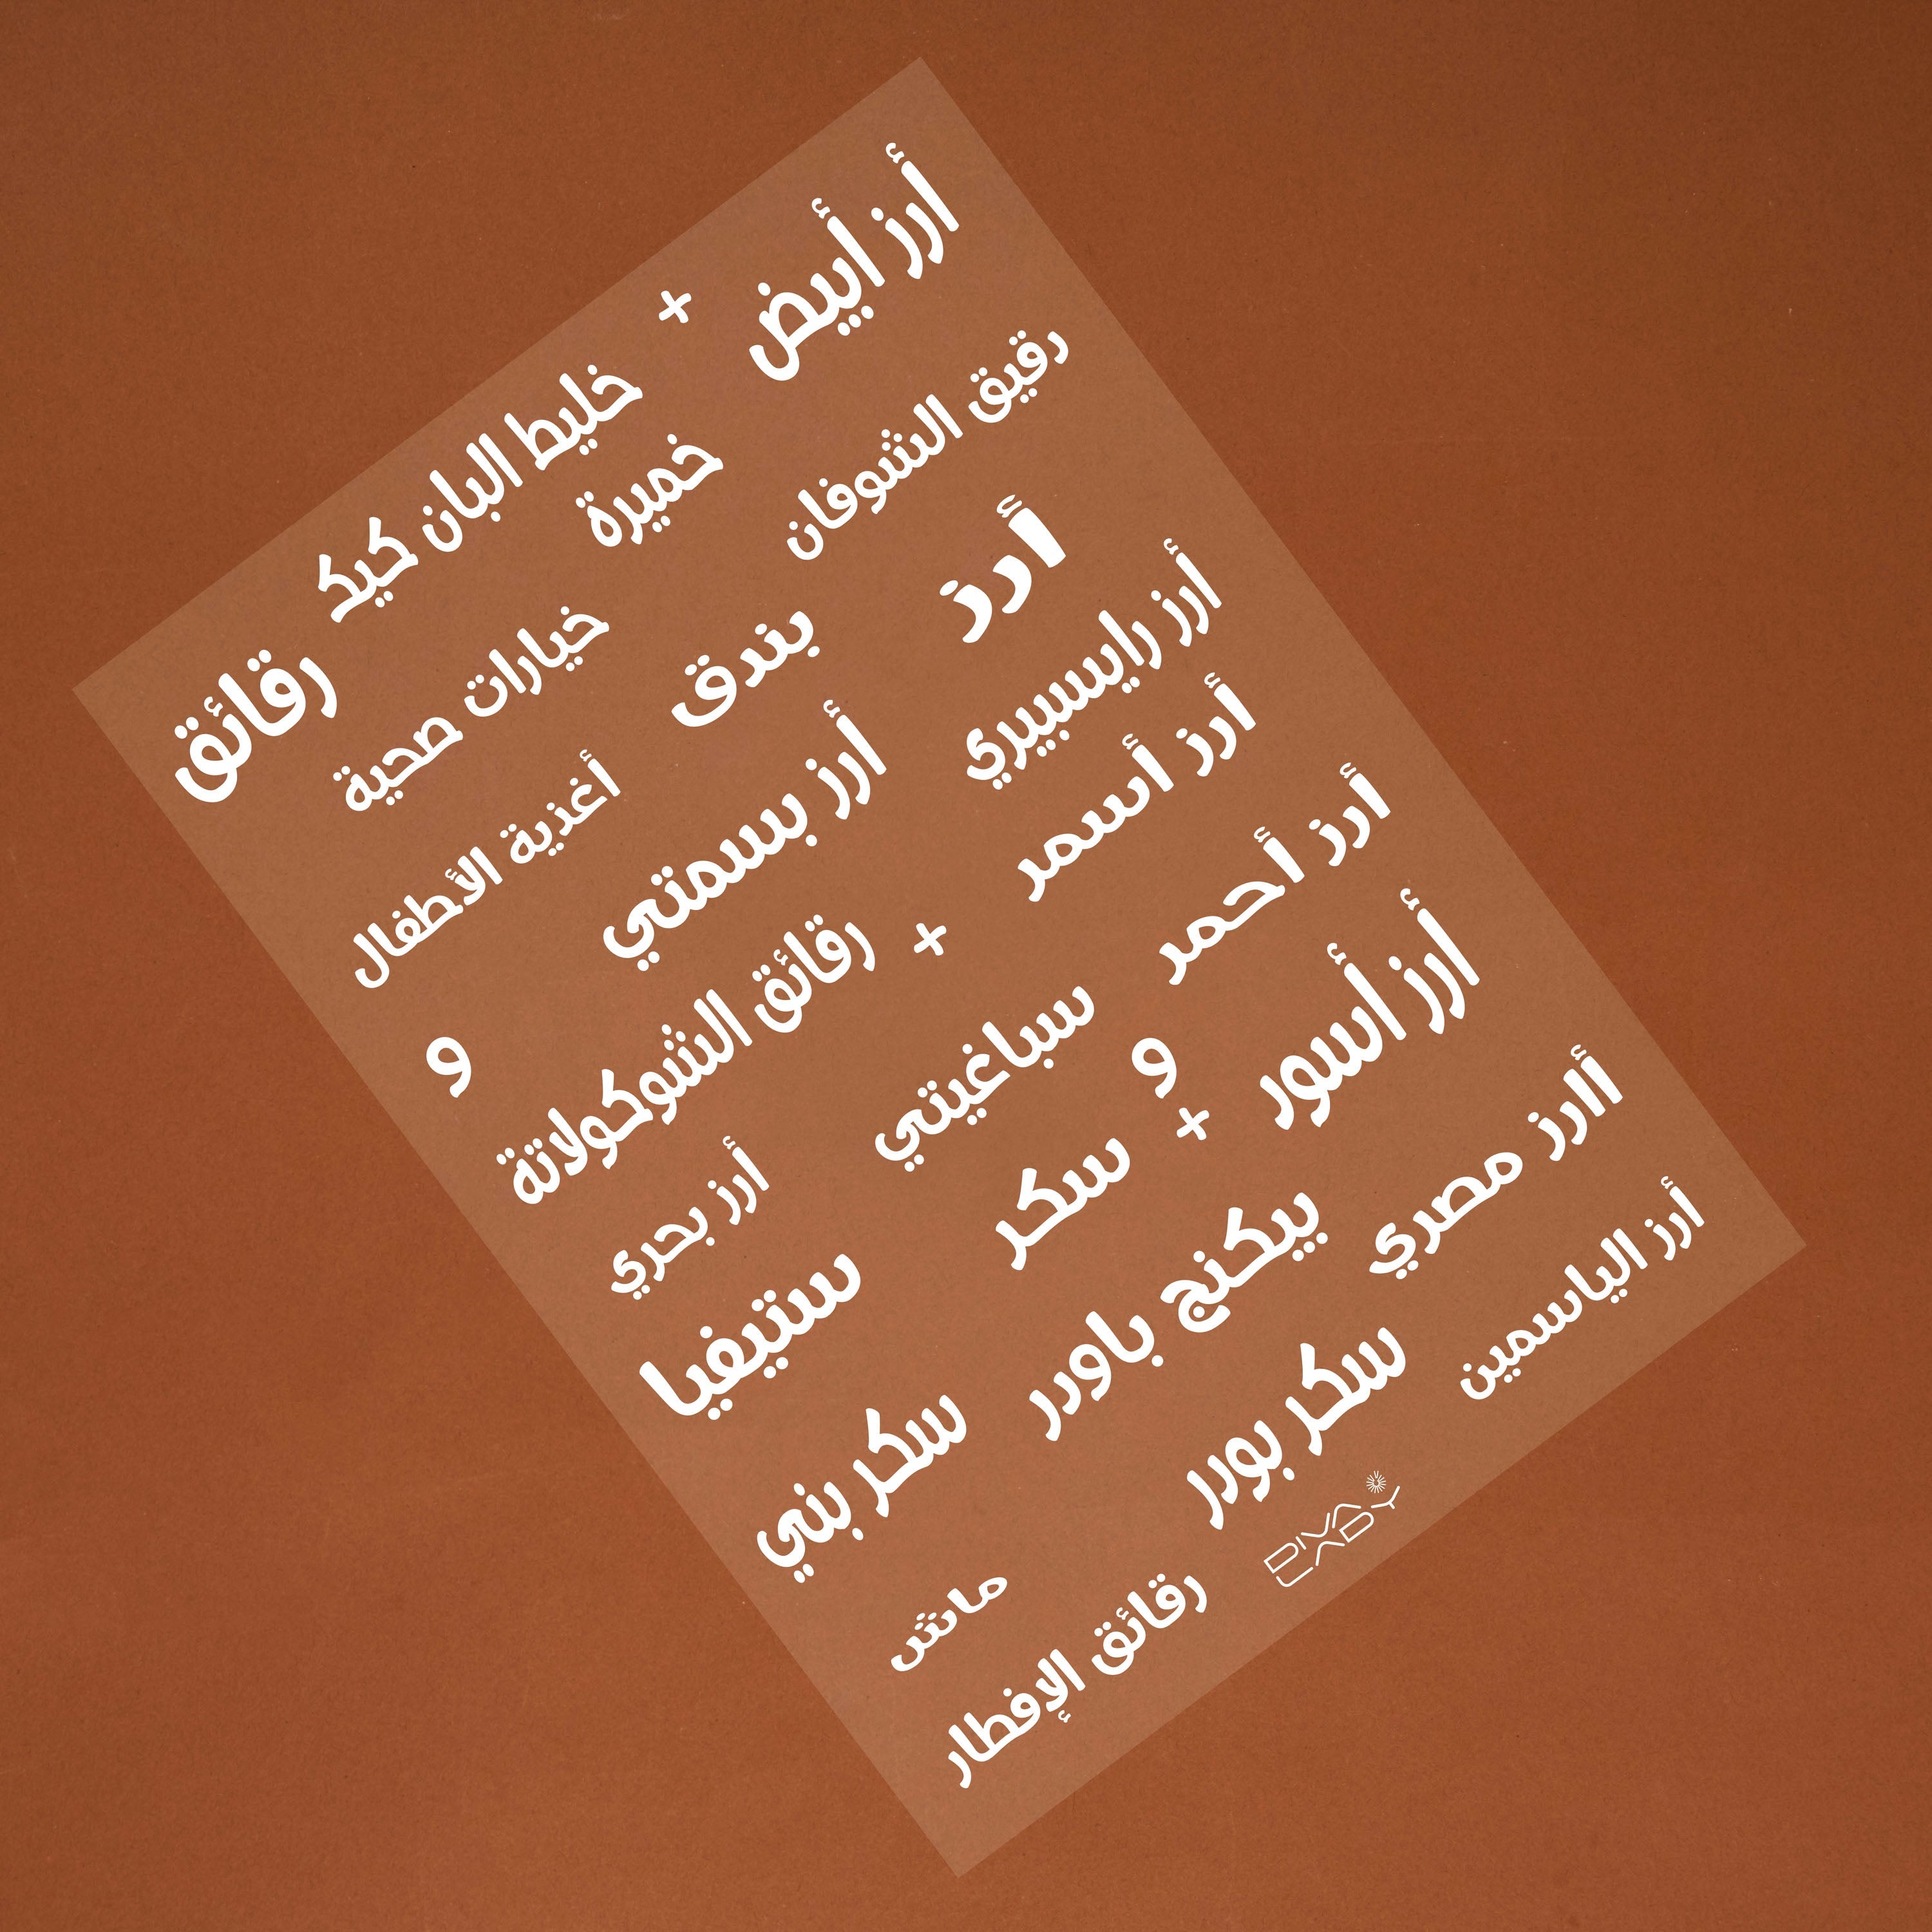 أرز أبيض + خليط البان كيك رقائق
رقيق الشوفان خميرة خيارات صحية
أرز بندق أغذية الأطفال
أرز رايسبيري أرز بسمتي و
أرز أسمر + رقائق الشوكولاتة
أرز أحمر سباغيتي أرز بحري
أرز أسود و + سكر ستيفيا
أارز مصري بيكنج باودر سكر بني
أرز الياسمين سكر بودر
DIVA LADY
رقائق الإفطار